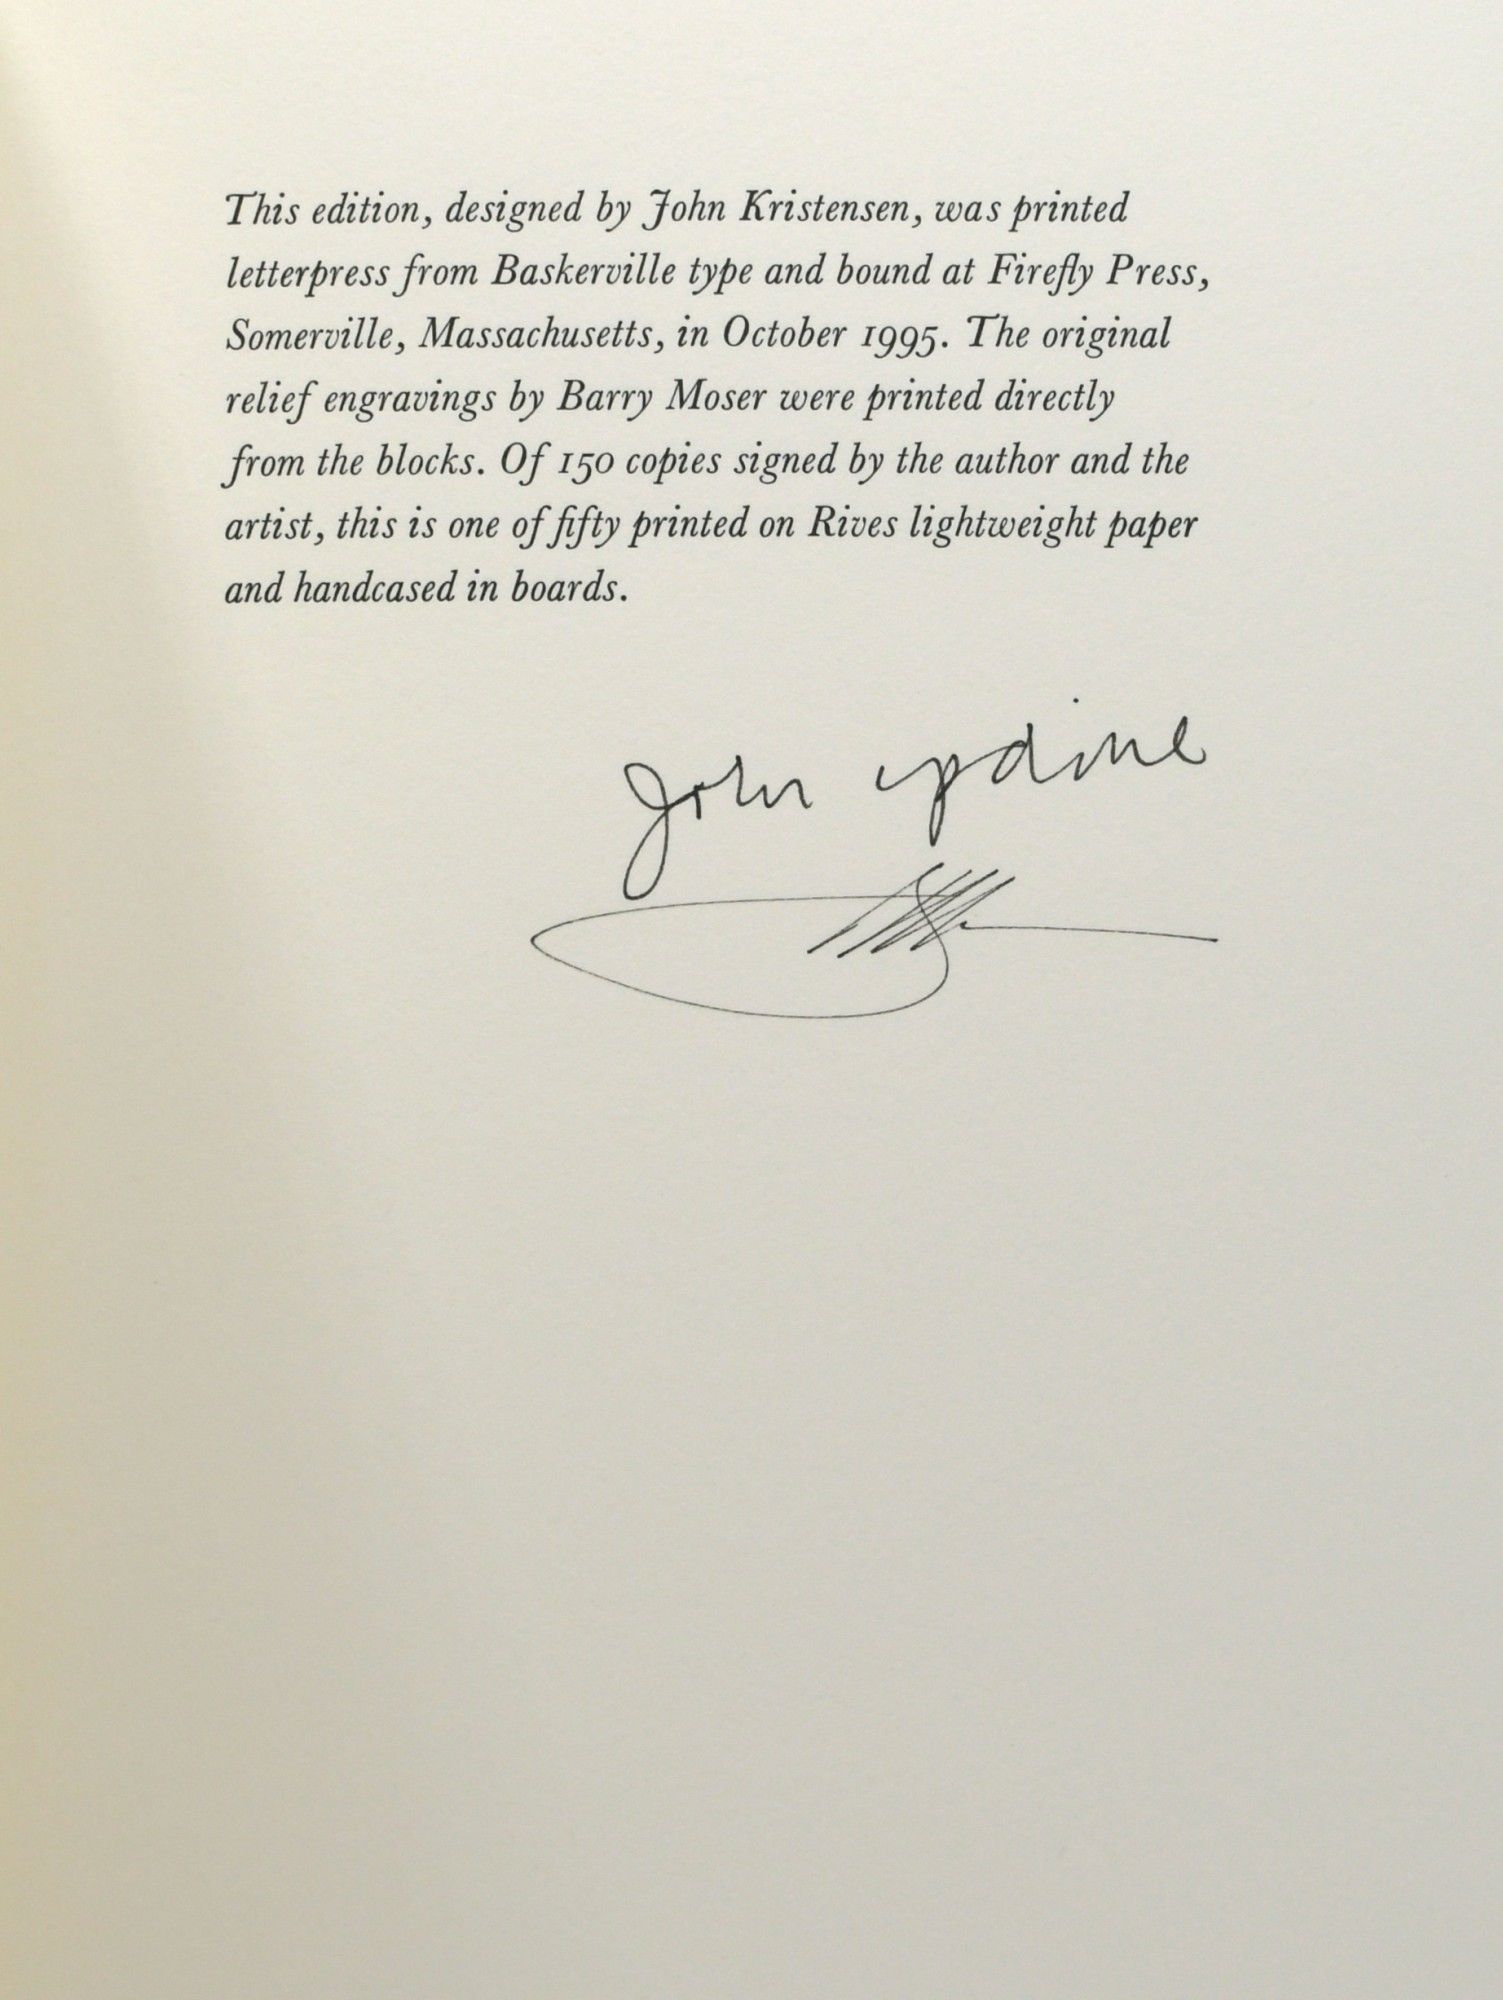 This edition, designed by John Kristensen, was printed
letterpress from Baskerville type and bound at Firefly Press,
Somerville, Massachusetts, in October 1995. The original
relief engravings by Barry Moser were printed directly
from the blocks. Of 150 copies signed by the author and the
artist, this is one of fifty printed on Rives lightweight paper
and handcased in boards.
John Updike